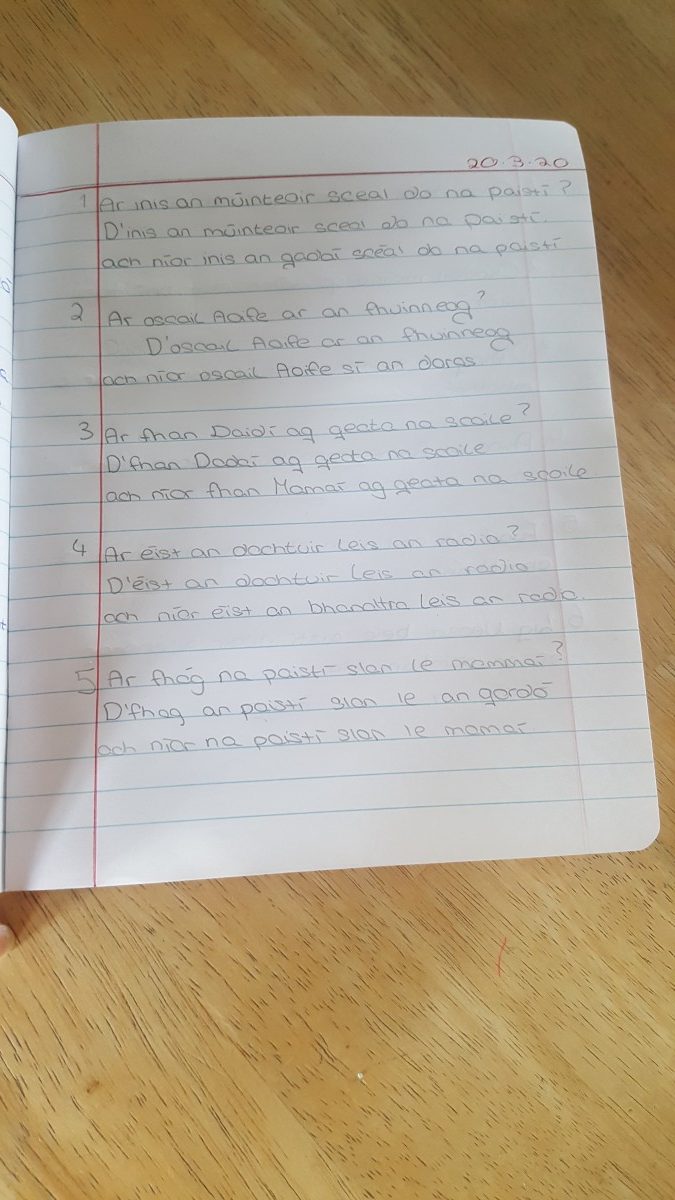 20.3.20
1 Ar inis an múinteoir sceal do na paistí?
D'inis an múinteoir sceal do na paistí.
ach níor inis an gadaí scéal do na paistí
2 Ar oscail Aoife ar an fhuinneog?
D'oscail Aoife ar an fhuinneog
ach níor oscail Aoife sí an doras
3 Ar fhan Daidí ag geata na scoile?
D'fhan Dadaí ag geata na scoile
ach níor fhan Mamaí ag geata na scoile
4 Ar éist an dochtuir leis an radio?
D'éist an dochtuir leis an radio
ach níor éist an bhanaltra leis an radio.
5 Ar fhóg na paistí slan le mammaí?
D'fhag an paistí slan le an
ach níor na paistí slan le mamaí